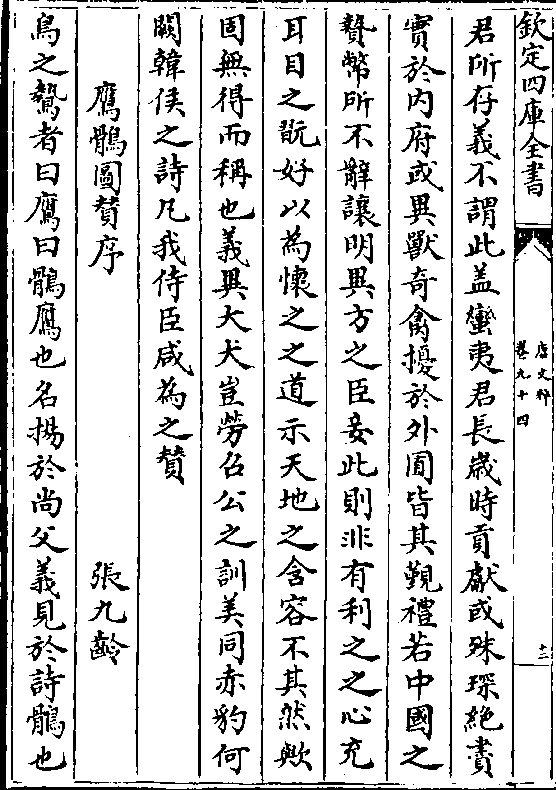 欽定四庫全書
唐文粹
卷九十四
十二
君所存義不謂此盖蠻夷君長歲時貢獻或殊琛絶賮
實於内府或異獸奇禽擾於外囿皆其覲禮若中國之
贄幣所不辭讓明異方之臣妾此則非有利之之心充
耳目之翫好以為懷之之道示天地之含容不其然歟
固無得而稱也義異大犬豈勞召公之訓美同赤豹何
闕韓侯之詩凡我侍臣咸為之賛
鷹鶻圖賛序
張九齡
鳥之鷙者曰鷹曰鶻鷹也名揚於尚父義見於詩鶻也